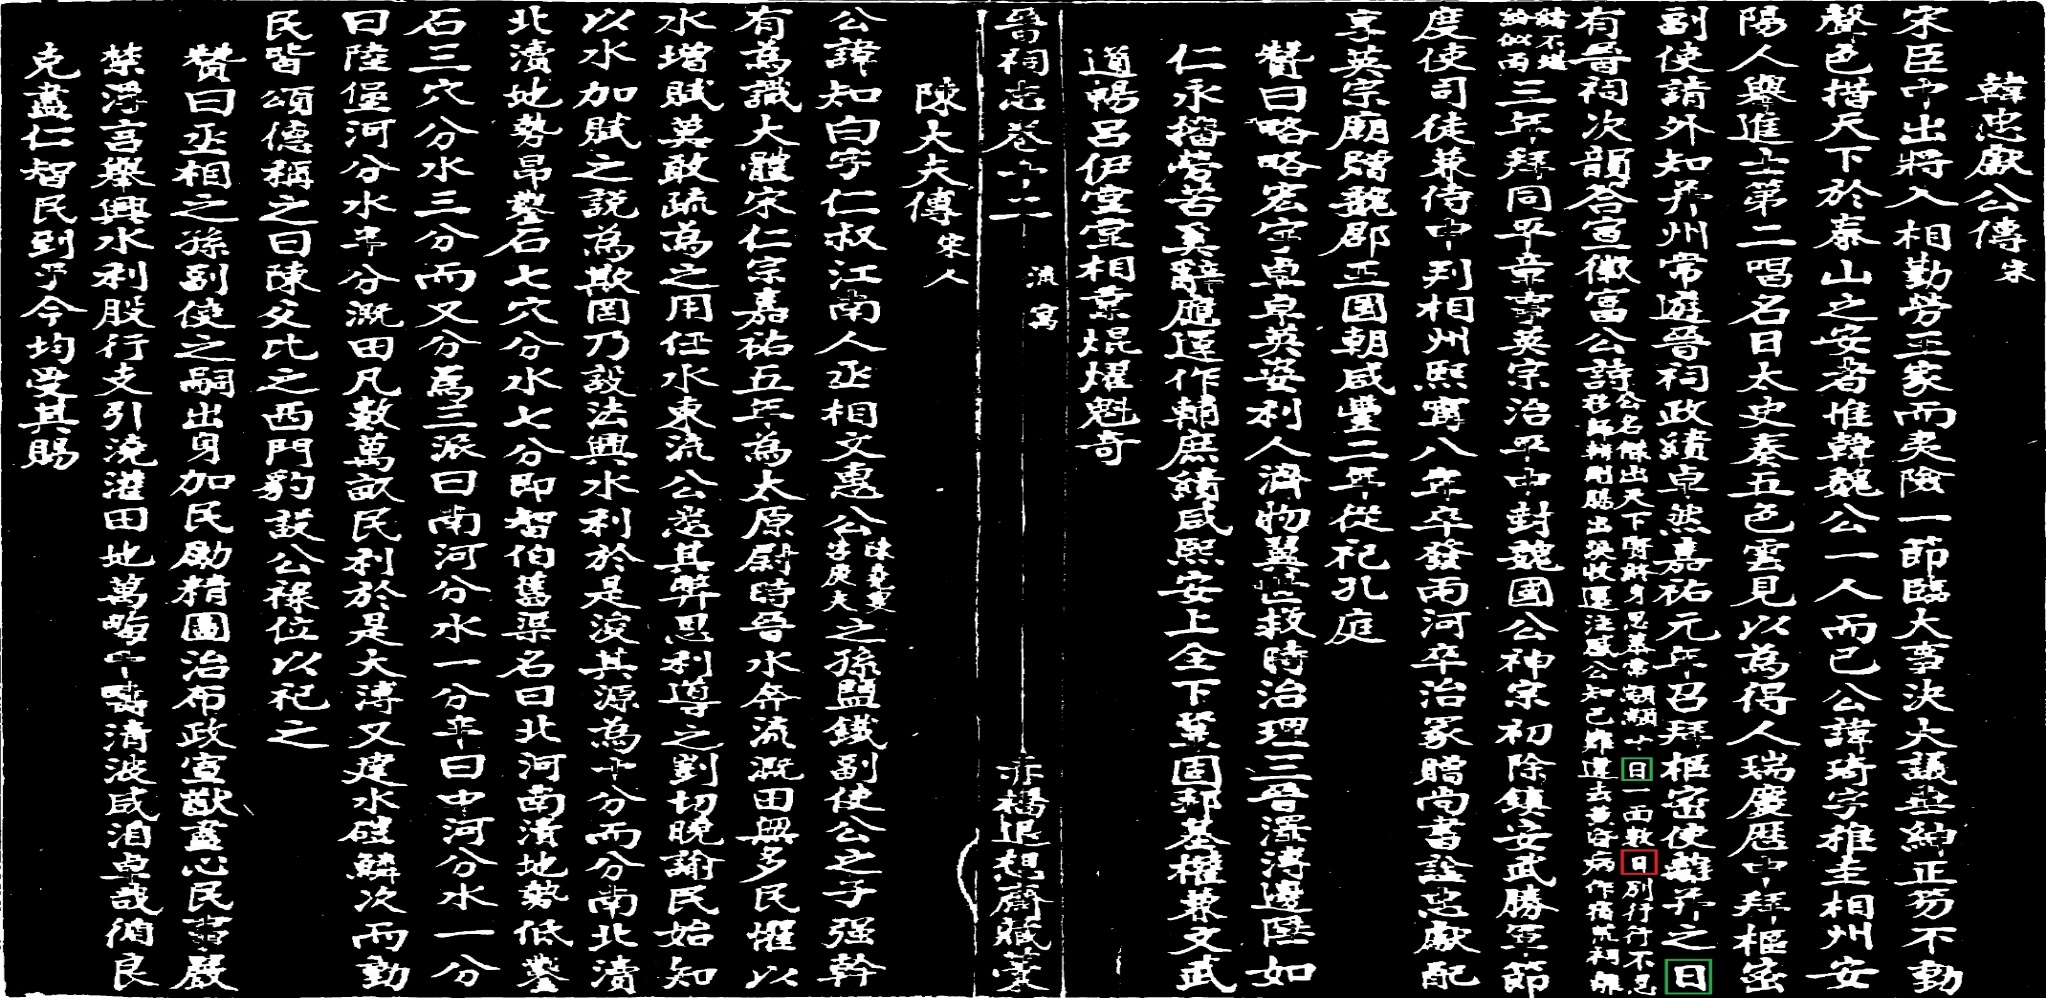 韓忠獻公傳宋
宋臣中出將入相勤勞王家而夷險一節臨大事決大議垂紳正笏不動
聲色措天下於泰山之安者惟韓魏公一人而已公諱琦字稚圭相州安
陽人舉進士第二唱名日太史奏五色雲見以為得人瑞慶曆中拜樞密
副使請外知并州常遊晉祠政績卓然嘉祐元年召拜樞密使離并之日
有晉祠次韻答宣徽富公詩公名傑出天下賢終身思慕常顒顒十日一面數日別行行不忍
移師幷剛勝出決收還注感公知己難遽去
三年拜同平章事英宗治平中封魏國公神宗初除鎮安武勝軍節
度使司徒兼侍中判相州熙寧八年卒發兩河卒治冢贈尚書諡忠獻配
享英宗廟贈魏郡王國朝咸豐二年從祀孔庭
贊曰略略宏宇卓卓英姿利人濟物翼世救時治理三晉澤溥邊陲如
仁永播勞苦奚辭應運作輔庶績咸熙安上全下冀固邦基權兼文武
道暢呂伊堂堂相業焜燿魁奇
晉祠志卷十二 流寓 赤橋退想齋賦藁
陳大夫傳宋人
公諱知白字仁叔江南人丞相文惠公之孫鹽鐵副使公之子强幹
有為識大體宋仁宗嘉祐五年為太原尉時晉水奔流溉田無多民懼以
水增賦莫敢疏為之用任水東流公悉其弊思利導之剴切曉諭民始知
以水加賦之說為欺罔乃設法興水利於是浚其源為十分而分南北瀆
北瀆地勢昂鑿石七穴分水七分即智伯舊渠名曰北河南瀆地勢低鑿
石三穴分水三分而又分為三派曰南河分水一分半曰中河分水一分
曰陸堡河分水半分溉田凡數萬畝民利於是大溥又建水磑鱗次而動
民皆頌德稱之曰陳父比之西門豹設公祿位以祀之
贊曰丞相之孫副使之嗣出身加民勵精圖治布政宣猷盡心民事嚴
禁浮言舉興水利股行支引澆灌田地萬畮千疇清波咸洎卓哉循良
克盡仁智民到于今均受其賜